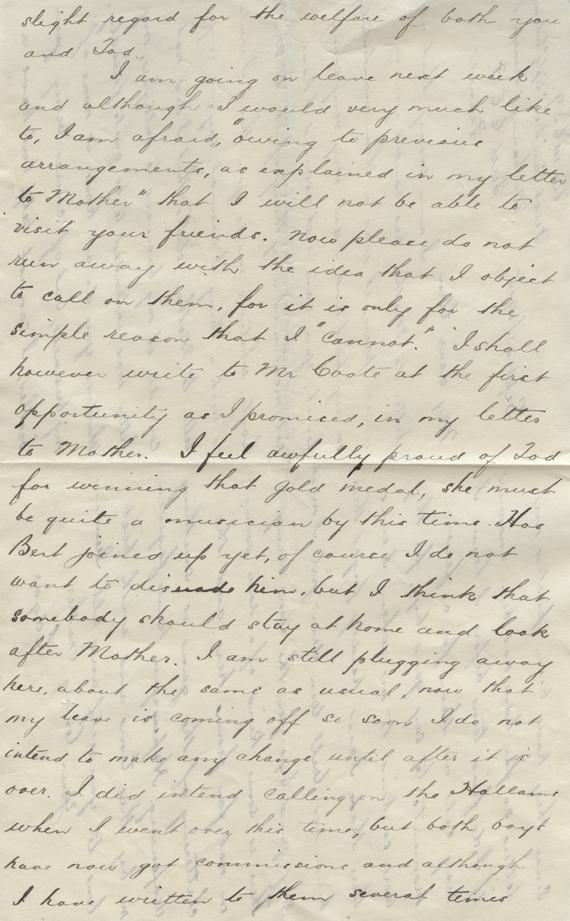 slight regard for the welfare of both you
and Tod.
I am going on leave next week
and although I would very much like
to, I am afraid, "owing to previous
arrangements, as explained in my letter
to Mother" that I will not be able to
visit your friends. now please do not
run away with the idea that I object
to call on them, for it is only for the
simple reason that I "cannot." I shall
however write to Mr Coote at the first
opportunity as I promised, in my letter
to Mother. I feel awfully proud of Tod
for winning that gold medal, she must
be quite a musician by this time. Has
Bert joined up yet, of course I do not
want to disuade him, but I think that
somebody should stay at home and look
after Mother. I am still plugging away
here, about the same as usual, now that
my leave is coming off so soon I do not
intend to make any change until after it is
over. I did intend calling on the Hallams
when I went over this time, but both boys
have now got commissions and although
I have written to them several times